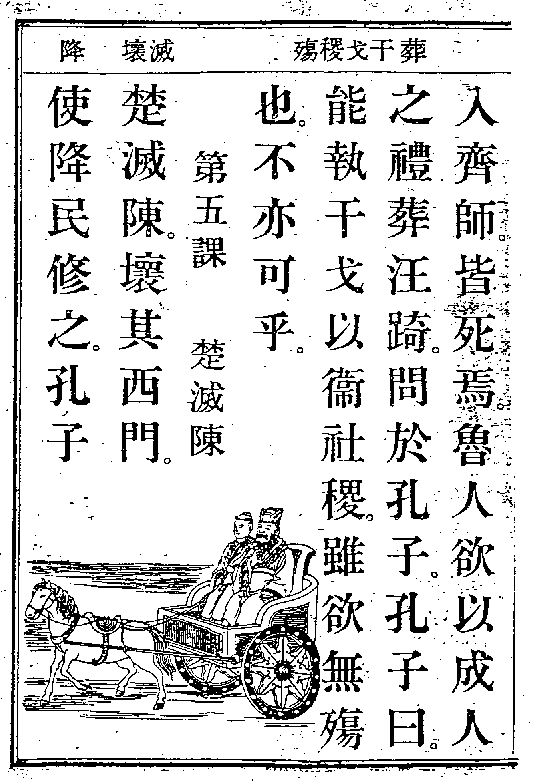 葬干戈稷殤
滅壞
降
入齊師。皆死焉。魯人欲以成人
之禮葬汪踦。問於孔子。孔子曰。
能執干戈以衞社稷。雖欲無殤
也。不亦可乎。
第五課 楚滅陳
楚滅陳。壞其西門。
使降民修之。孔子